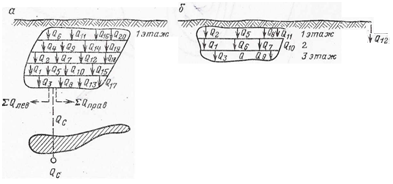 а
Q6 Q11 Q16 Q20 1 этаж
Q4 Q9 Q14 Q19
Q2 Q7 Q12 Q18
Q1 Q5 Q10 Q15
Q3 Q8 Q13 Q17
ΣQлев ΣQправ
Qс
Qс
б
Q2 Q5 Q8 Q11 1 этаж
Q1 Q6 Q7 Q10 2
Q3 Q Q9 3 этаж
Q12